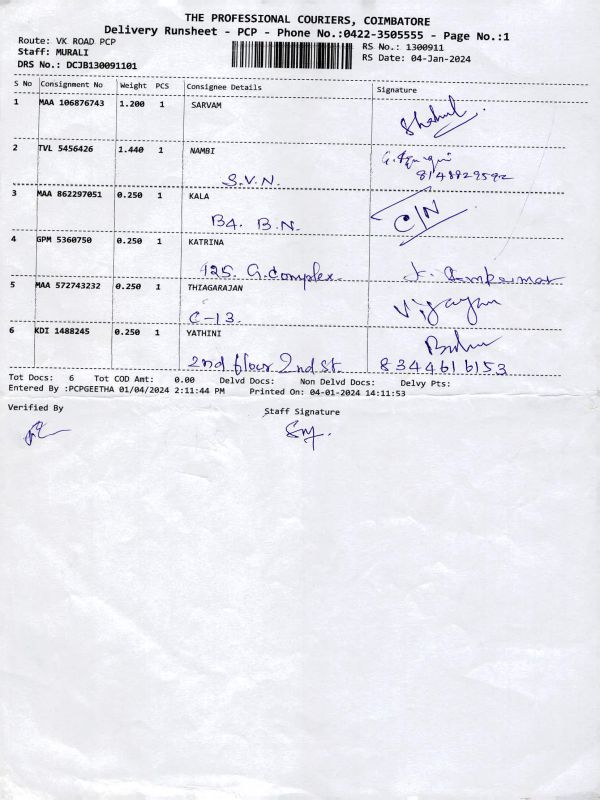 THE PROFESSIONAL COURIERS, COIMBATORE
Delivery Runsheet - PCP - Phone No.:0422-3505555 - Page No.:1
Route: VK ROAD PCP
Staff: MURALI
DRS No.: DCJB130091101
RS No.: 1300911
RS Date: 04-Jan-2024
S No Consignment No Weight PCS Consignee Details Signature
1 MAA 106876743 1.200 1 SARVAM
2 TVL 5456426 1.440 1 NAMBI
S.V.N. 8148829592
3 MAA 862297051 0.250 1 KALA
B4. B.N. C/N
4 GPM 5360750 0.250 1 KATRINA
125. G.complex
5 MAA 572743232 0.250 1 THIAGARAJAN
C-13. Vijayan
6 KDI 1488245 0.250 1 YATHINI
2nd floor 2nd st. 8344616153
Tot Docs: 6 Tot COD Amt: 0.00 Delvd Docs: Non Delvd Docs: Delvy Pts:
Entered By :PCPGEETHA 01/04/2024 2:11:44 PM Printed On: 04-01-2024 14:11:53
Verified By Staff Signature